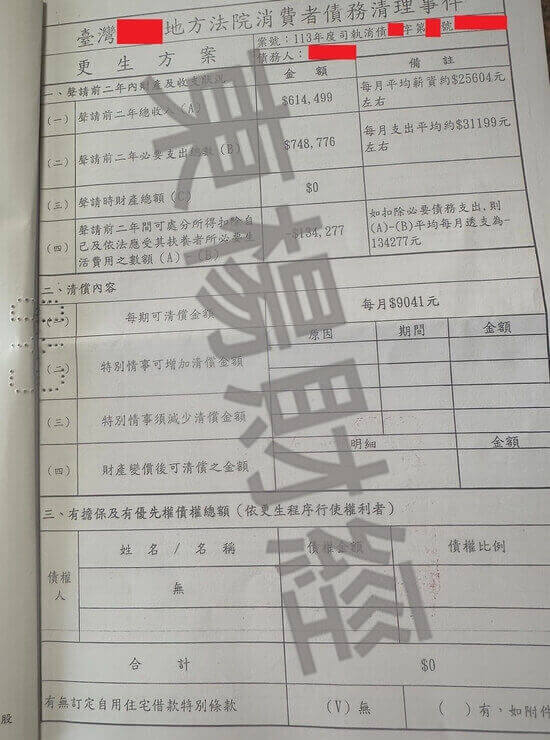 臺灣 地方法院消費者債務清理事件
更生方案
案號：113年度司執消債 字第 號
債務人：
一、聲請前二年內財產及收支狀況
金額
備註
(一) 聲請前二年總收入(A)
$614,499
每月平均薪資約$25604元
左右
(二) 聲請前二年必要支出總數(B)
$748,776
每月支出平均約$31199元
左右
(三) 聲請時財產總額(C)
$0
(四) 聲請前二年間可處分所得扣除自
己及依法應受其扶養者所必要生
活費用之數額(A) (B)
-$134,277
如扣除必要債務支出，則
(A)-(B)平均每月透支為-
134277元
二、清償內容
(一) 每期可清償金額
每月$9041元
(二) 特別情事可增加清償金額
原因 期間 金額
(三) 特別情事須減少清償金額
(四) 財產變價後可清償之金額
明細 金額
三、有擔保及有優先權債權總額(依更生程序行使權利者)
債權
人
姓名/名稱 債權金額 債權比例
無
合計 $0
有無訂定自用住宅借款特別條款 (V)無 ( )有，如附件
股
東易財經